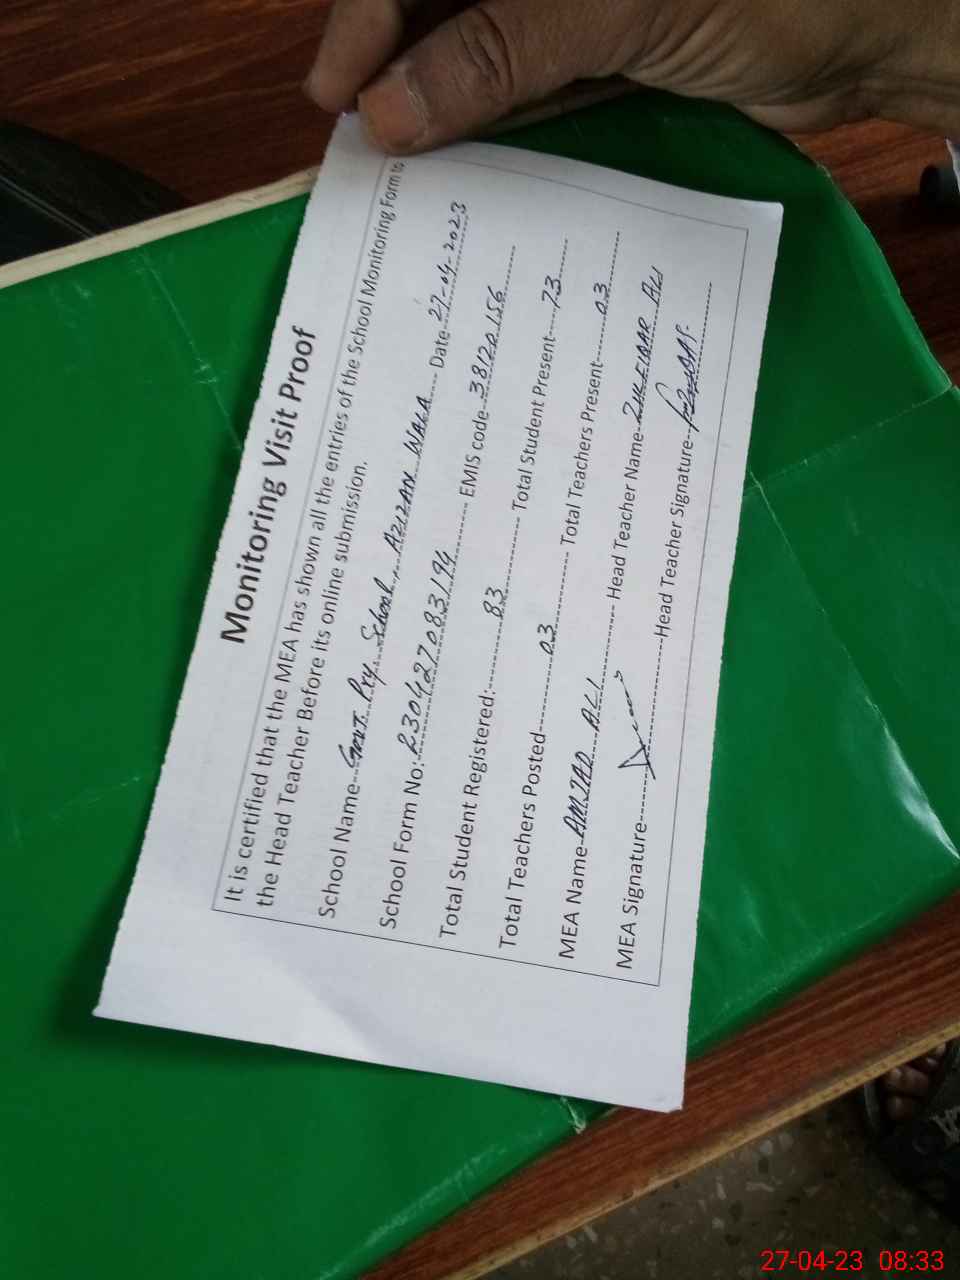 Monitoring Visit Proof
It is certified that the MEA has shown all the entries of the School Monitoring Form to
the Head Teacher Before its online submission.
School Name--Govt. Pry. School, AZIZAN WALA---- Date--27-04-2023
School Form No:-230427083194---------- EMIS code--38120156-------
Total Student Registered:----------83-------------- Total Student Present-----73-------
Total Teachers Posted-----------03------------- Total Teachers Present---------03-------
MEA Name-AMJAD ALI------------- Head Teacher Name-ZULFIQAR ALI
MEA Signature------------------------Head Teacher Signature------------------
27-04-23 08:33